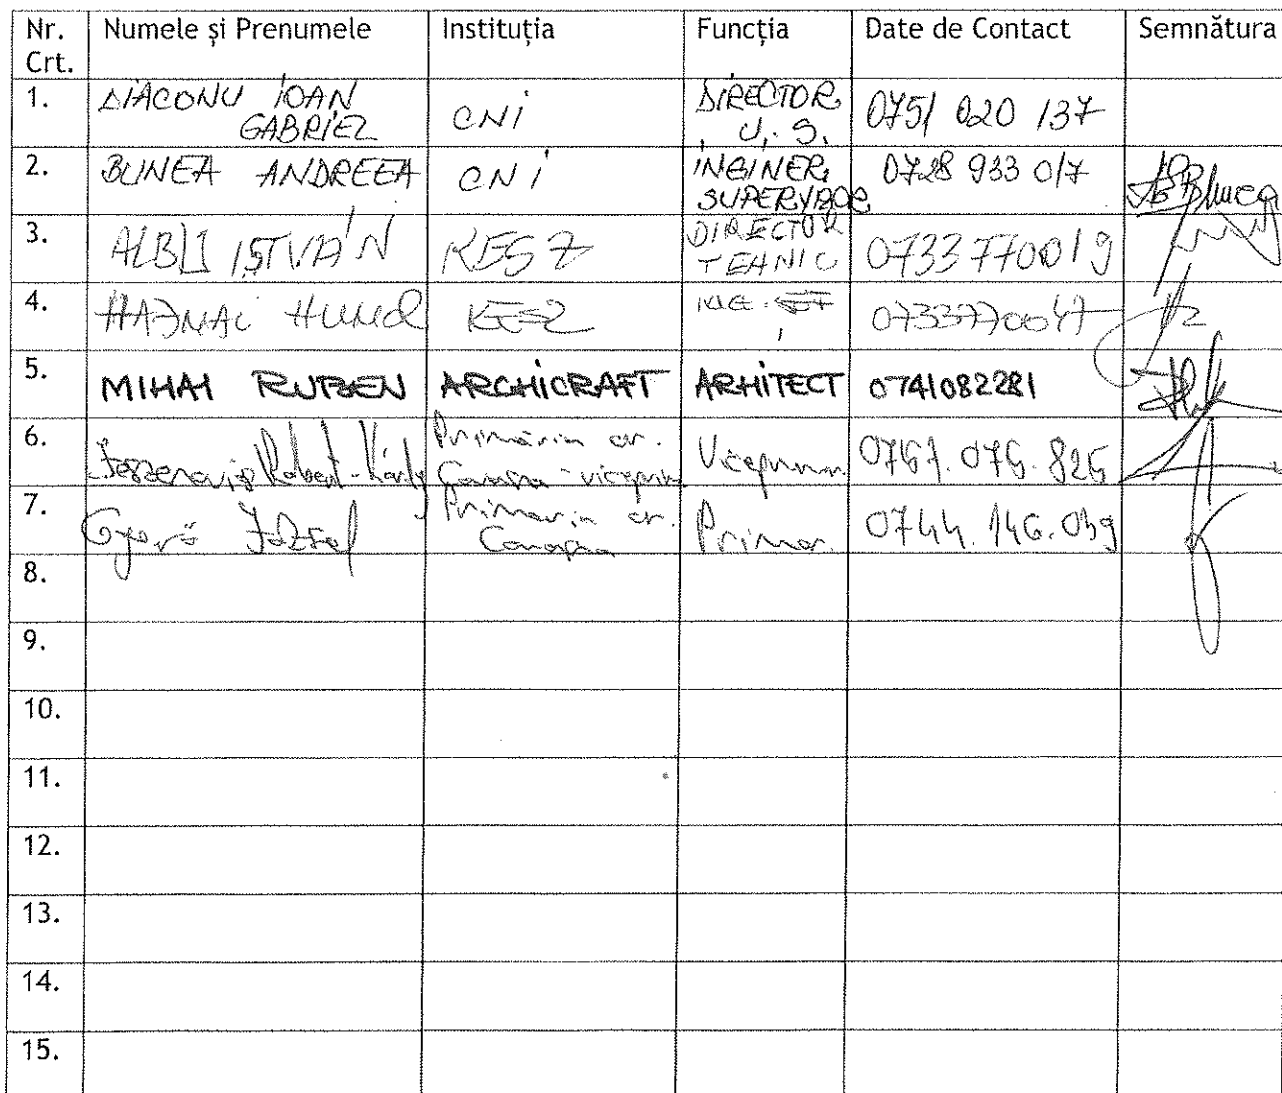 Nr. Crt. Numele și Prenumele Instituția Funcția Date de Contact Semnătura
1. DIACONU IOAN GABRIEL CNI DIRECTOR U.S. 0751 020 137
2. BUNEA ANDREEA CNI INGINER SUPERVIZOR 0728 933 017
3. ALBU ISTVÁN KESZ DIRECTOR TEHNIC 0733770019
4. HAJNAL HUNOR KESZ 0733770047
5. MIHAI RUBEN ARCHICRAFT ARHITECT 0741082281
6. Robert-Károly Primăria or. Viceprimar 0767.076.825
7. Győrő József Primăria or. Primar 0744.146.039
8.
9.
10.
11.
12.
13.
14.
15.